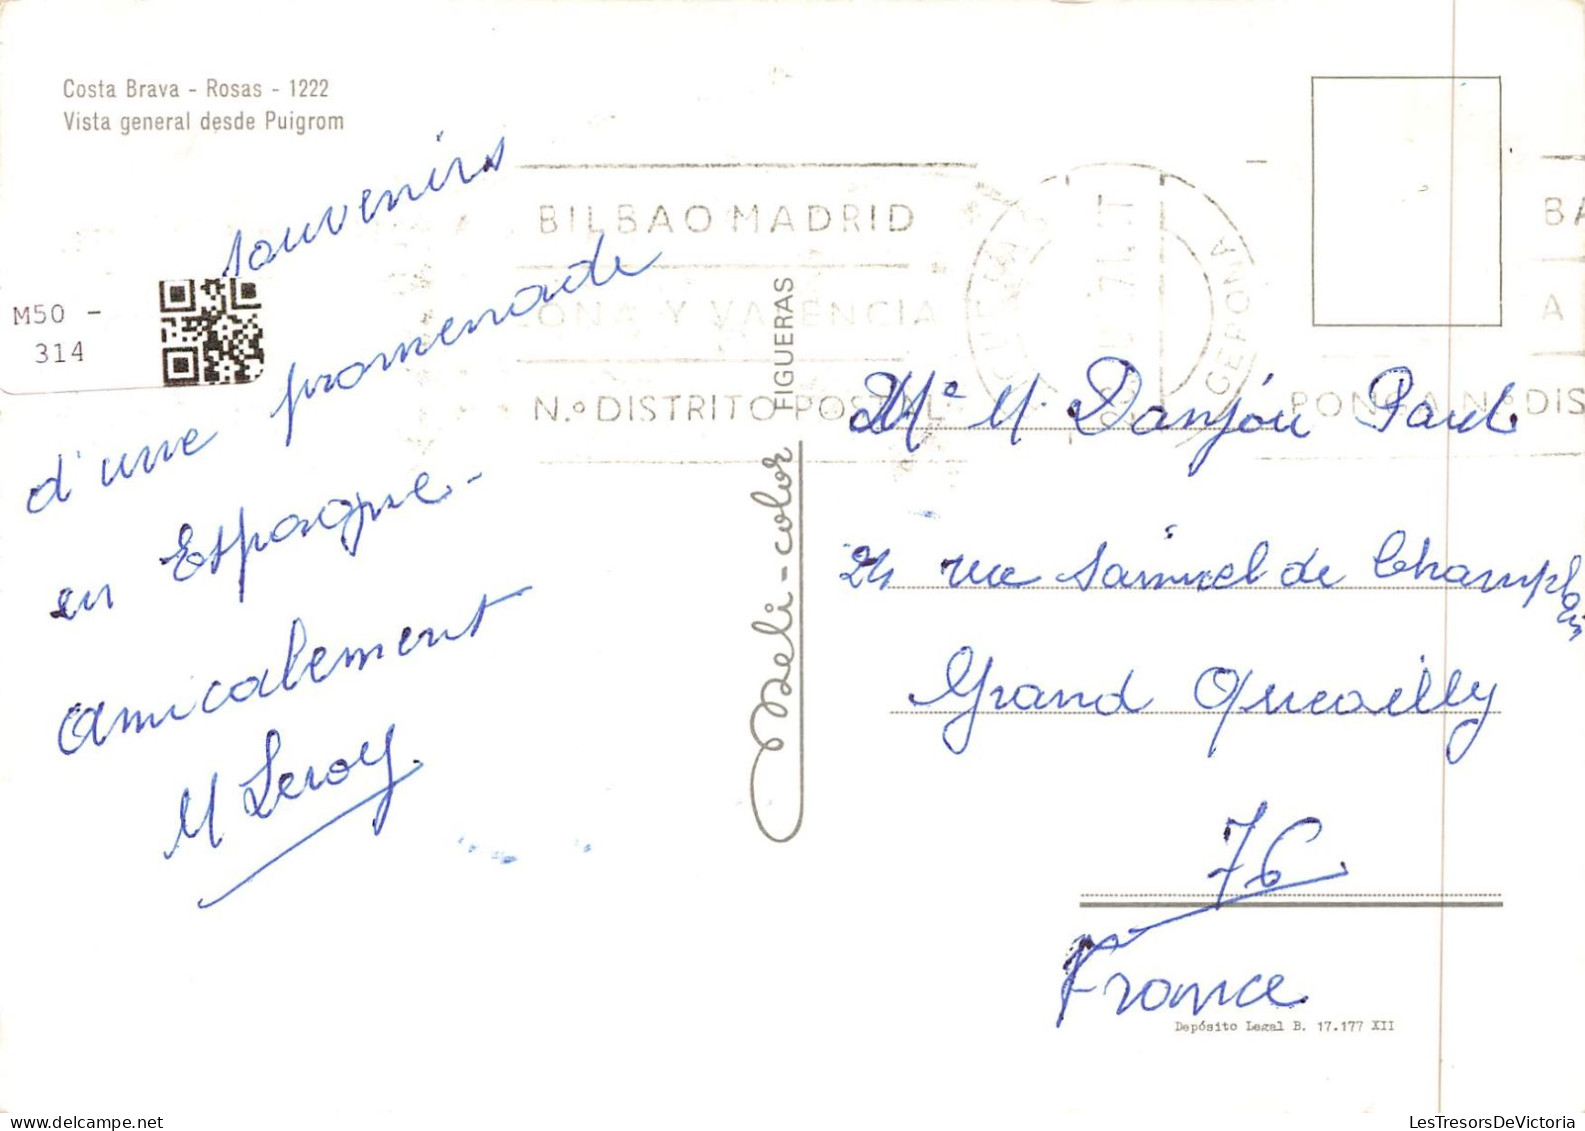 Costa Brava - Rosas - 1222
Vista general desde Puigrom
M50 -
314
souvenirs
d'une promenade
en Espagne -
amicalement
M Leroy
BILBAO MADRID
ONA Y VALENCIA
N.º DISTRITO POSTAL
GERONA
BA
A
PONGA Nº DIS
Meli - color FIGUERAS
Mº M. Danjou Paul
24 rue Samuel de Champlain
Grand Queailly
76
France
Depósito Legal B. 17.177 XII
LesTresorsDeVictoria
LesTresorsDeVictoria